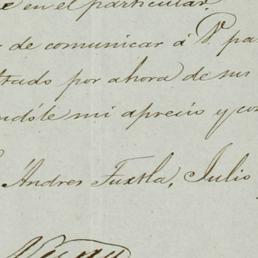 en el particular.
de comunicar á V. pa
tado por ahora de sus
ndóle mi aprecio y con
Andres Tuxtla, Julio